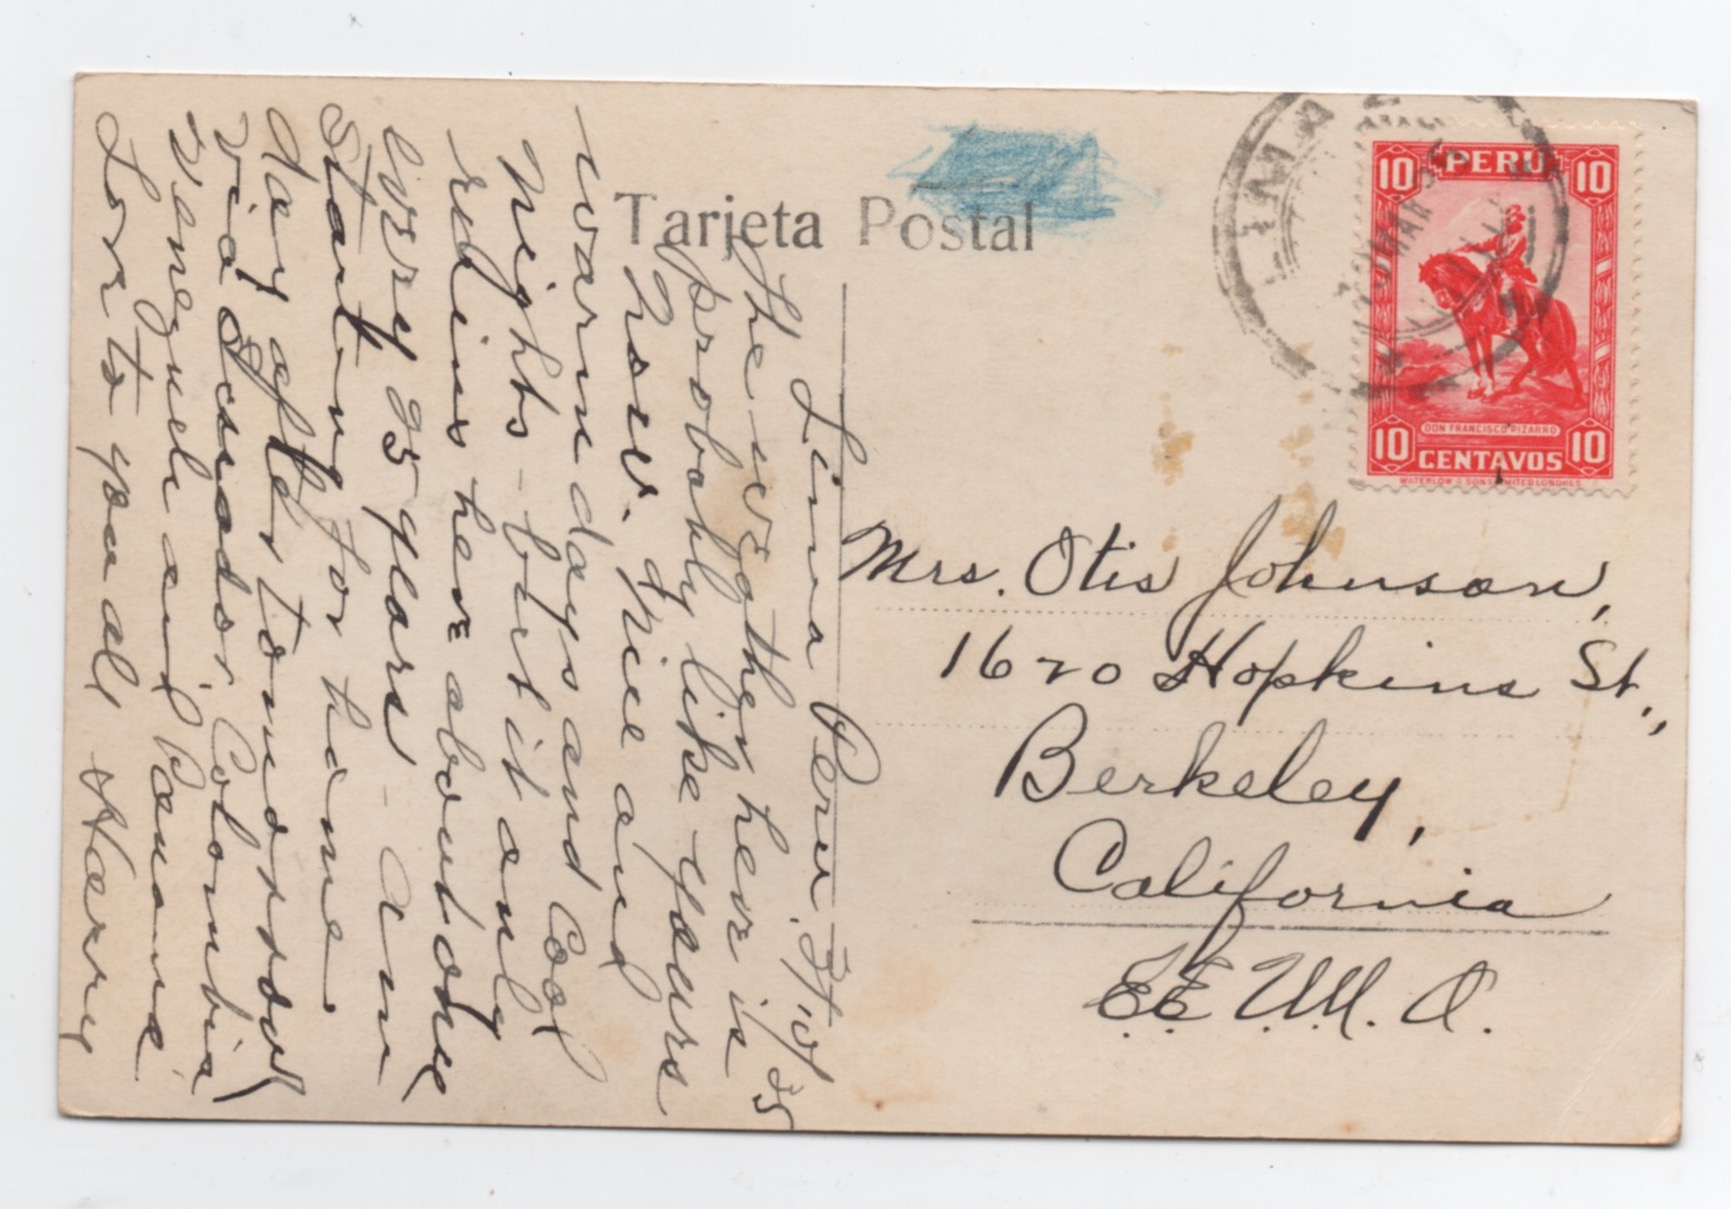 Tarjeta Postal
Lima Peru. 3/10/35
The weather here is
probably like yours
now. Nice and
warm days and cool
nights - but it only
rains here about once
every 25 years - am
starting for home
day after tomorrow
via Ecuador, Colombia
Venezuela and Panama
Love to you all Harry
LIMA
MAR
10 PERU 10
DON FRANCISCO PIZARRO
10 CENTAVOS 10
WATERLOW & SONS LIMITED LONDRES
Mrs. Otis Johnson,
1620 Hopkins St.,
Berkeley,
California
E.E. U.U. A.